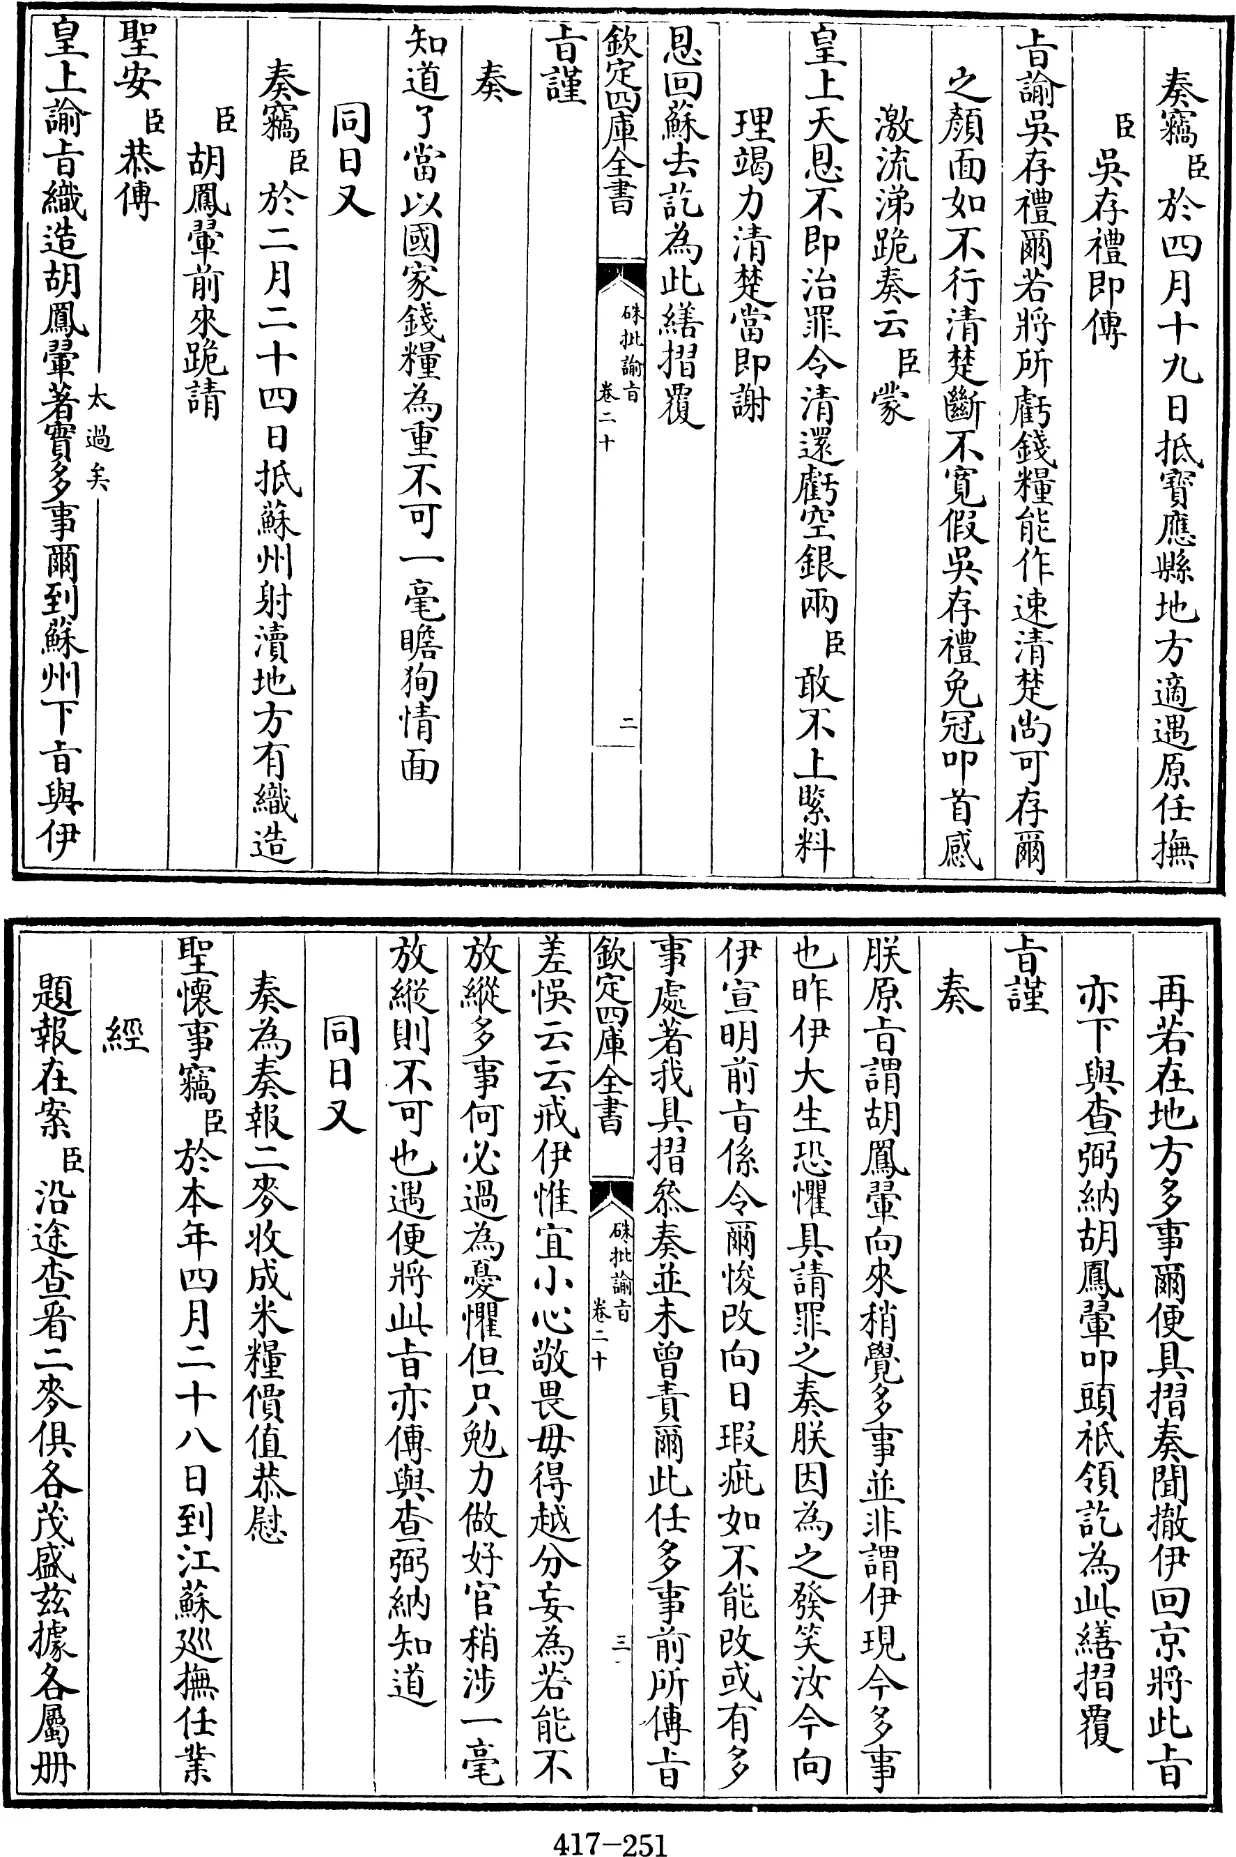 奏竊臣於四月十九日抵寶應縣地方適遇原任撫
臣吳存禮即傳
旨諭吳存禮爾若將所虧錢糧能作速清楚尚可存爾
之顏面如不行清楚斷不寬假吳存禮免冠叩首感
激流涕跪奏云臣蒙
皇上天恩不即治罪令清還虧空銀兩臣敢不上緊料
理竭力清楚當即謝
恩回蘇去訖為此繕摺覆
欽定四庫全書 硃批諭旨 卷二十 二
旨謹
奏
知道了當以國家錢糧為重不可一毫瞻狥情面
同日又
奏竊臣於二月二十四日抵蘇州射瀆地方有織造
臣胡鳳翬前來跪請
聖安臣恭傳
太過矣
皇上諭旨織造胡鳳翬著實多事爾到蘇州下旨與伊
再若在地方多事爾便具摺奏聞撤伊回京將此旨
亦下與查弼納胡鳳翬叩頭祗領訖為此繕摺覆
旨謹
奏
朕原旨謂胡鳳翬向來稍覺多事並非謂伊現今多事
也昨伊大生恐懼具請罪之奏朕因為之發笑汝今向
伊宣明前旨係令爾悛改向日瑕疵如不能改或有多
事處著我具摺叅奏並未曾責爾此任多事前所傳旨
欽定四庫全書 硃批諭旨 卷二十 三
差悞云云戒伊惟宜小心敬畏毋得越分妄為若能不
放縱多事何必過為憂懼但只勉力做好官稍涉一毫
放縱則不可也遇便將此旨亦傳與查弼納知道
同日又
奏為奏報二麥收成米糧價值恭慰
聖懷事竊臣於本年四月二十八日到江蘇廵撫任業
經
題報在案臣沿途查看二麥俱各茂盛茲據各屬册
417-251